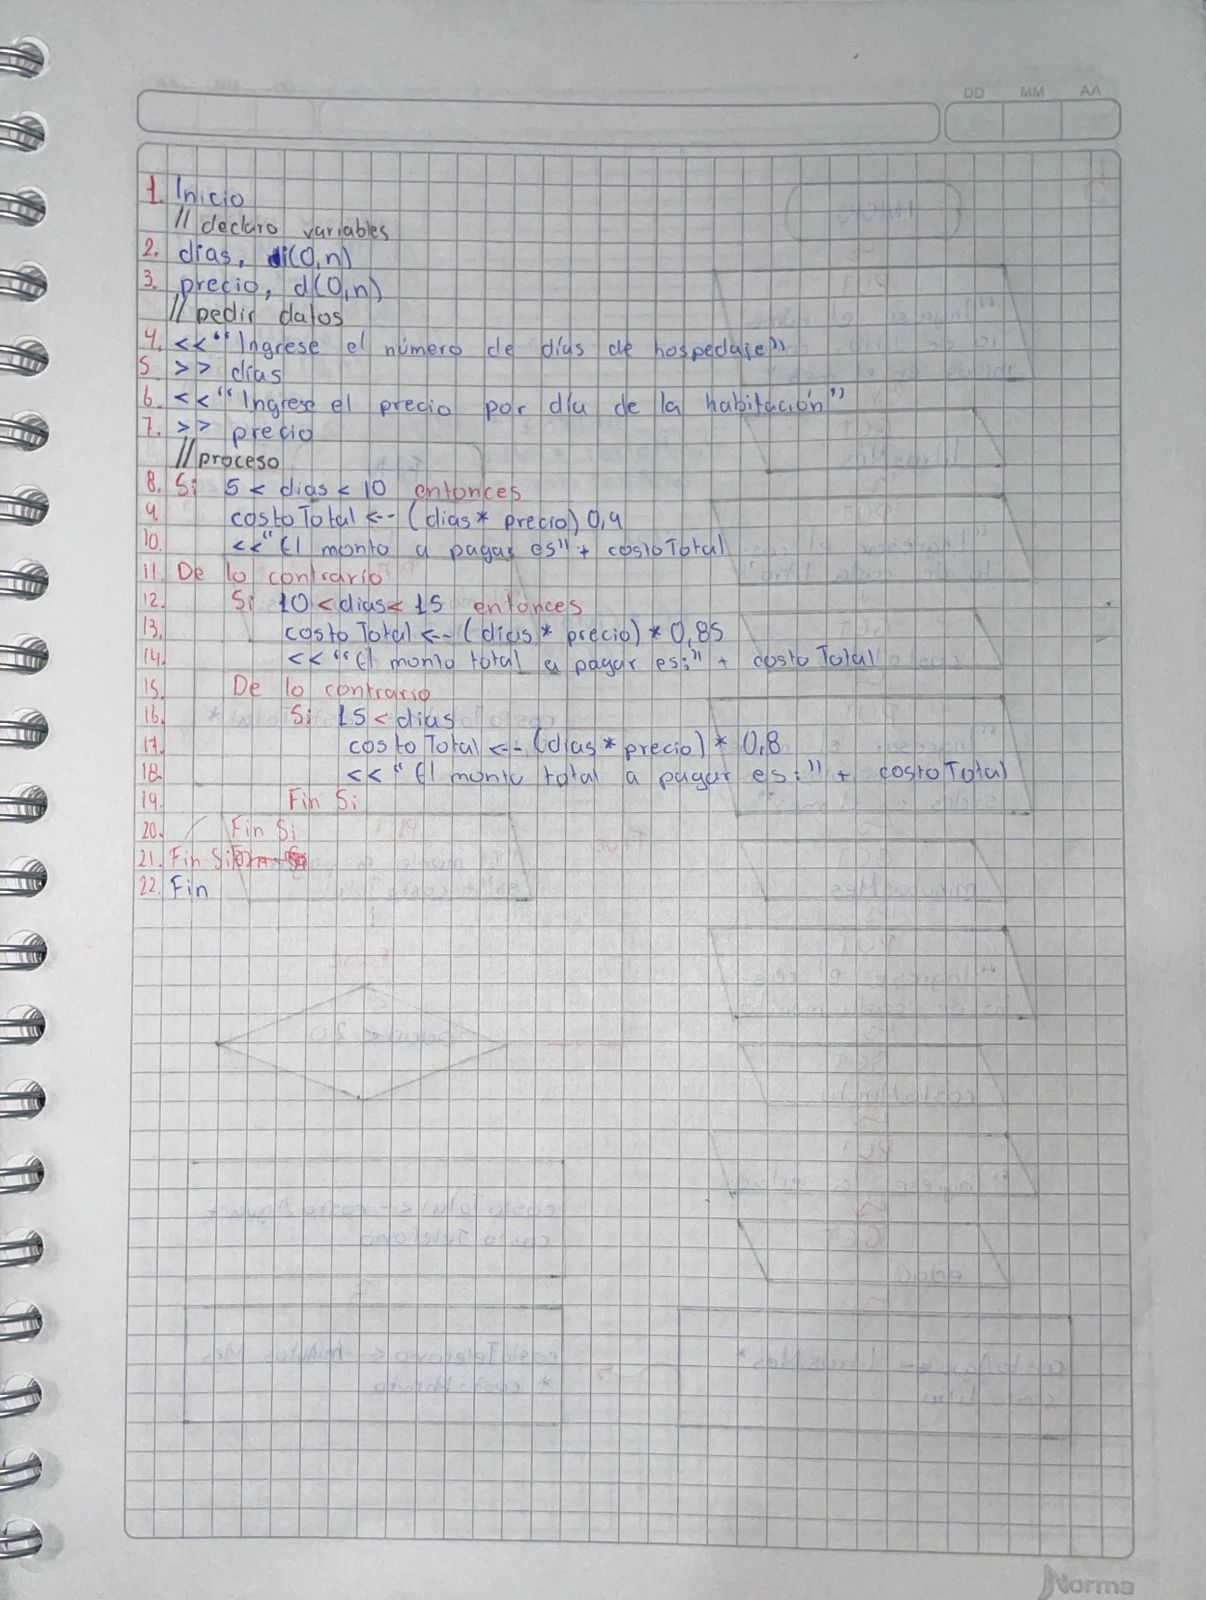 DD MM AA
1. Inicio
// declaro variables
2. dias, di(0,n)
3. precio, d(0,n)
// pedir datos
4. <<"Ingrese el número de días de hospedaje"
5 >> días
6. <<"Ingrese el precio por día de la habitación"
7. >> precio
// proceso
8. Si 5 < dias < 10 entonces
9 costoTotal <-- (dias * precio) 0,9
10. <<"El monto a pagar es" + costoTotal
11. De lo contrario
12. Si 10 < dias < 15 entonces
13. costo Total <-- (dias * precio) * 0,85
14. <<"El monto total a pagar es:" + costo Total
15. De lo contrario
16. Si 15 < dias
17. costo Total <-- (dias * precio) * 0,8
18. <<"El monto total a pagar es:" + costoTotal
19. Fin Si
20. Fin Si
21. Fin Si
22. Fin
Norma